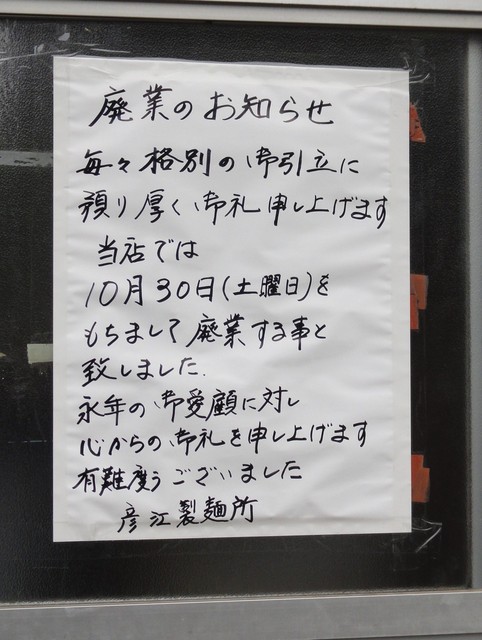 廃業のお知らせ
毎々格別の御引立に
預り厚く御礼申し上げます
当店では
10月30日(土曜日)を
もちまして廃業する事と
致しました.
永年の御愛顧に対し
心からの御礼を申し上げます
有難度うございました
彦江製麺所